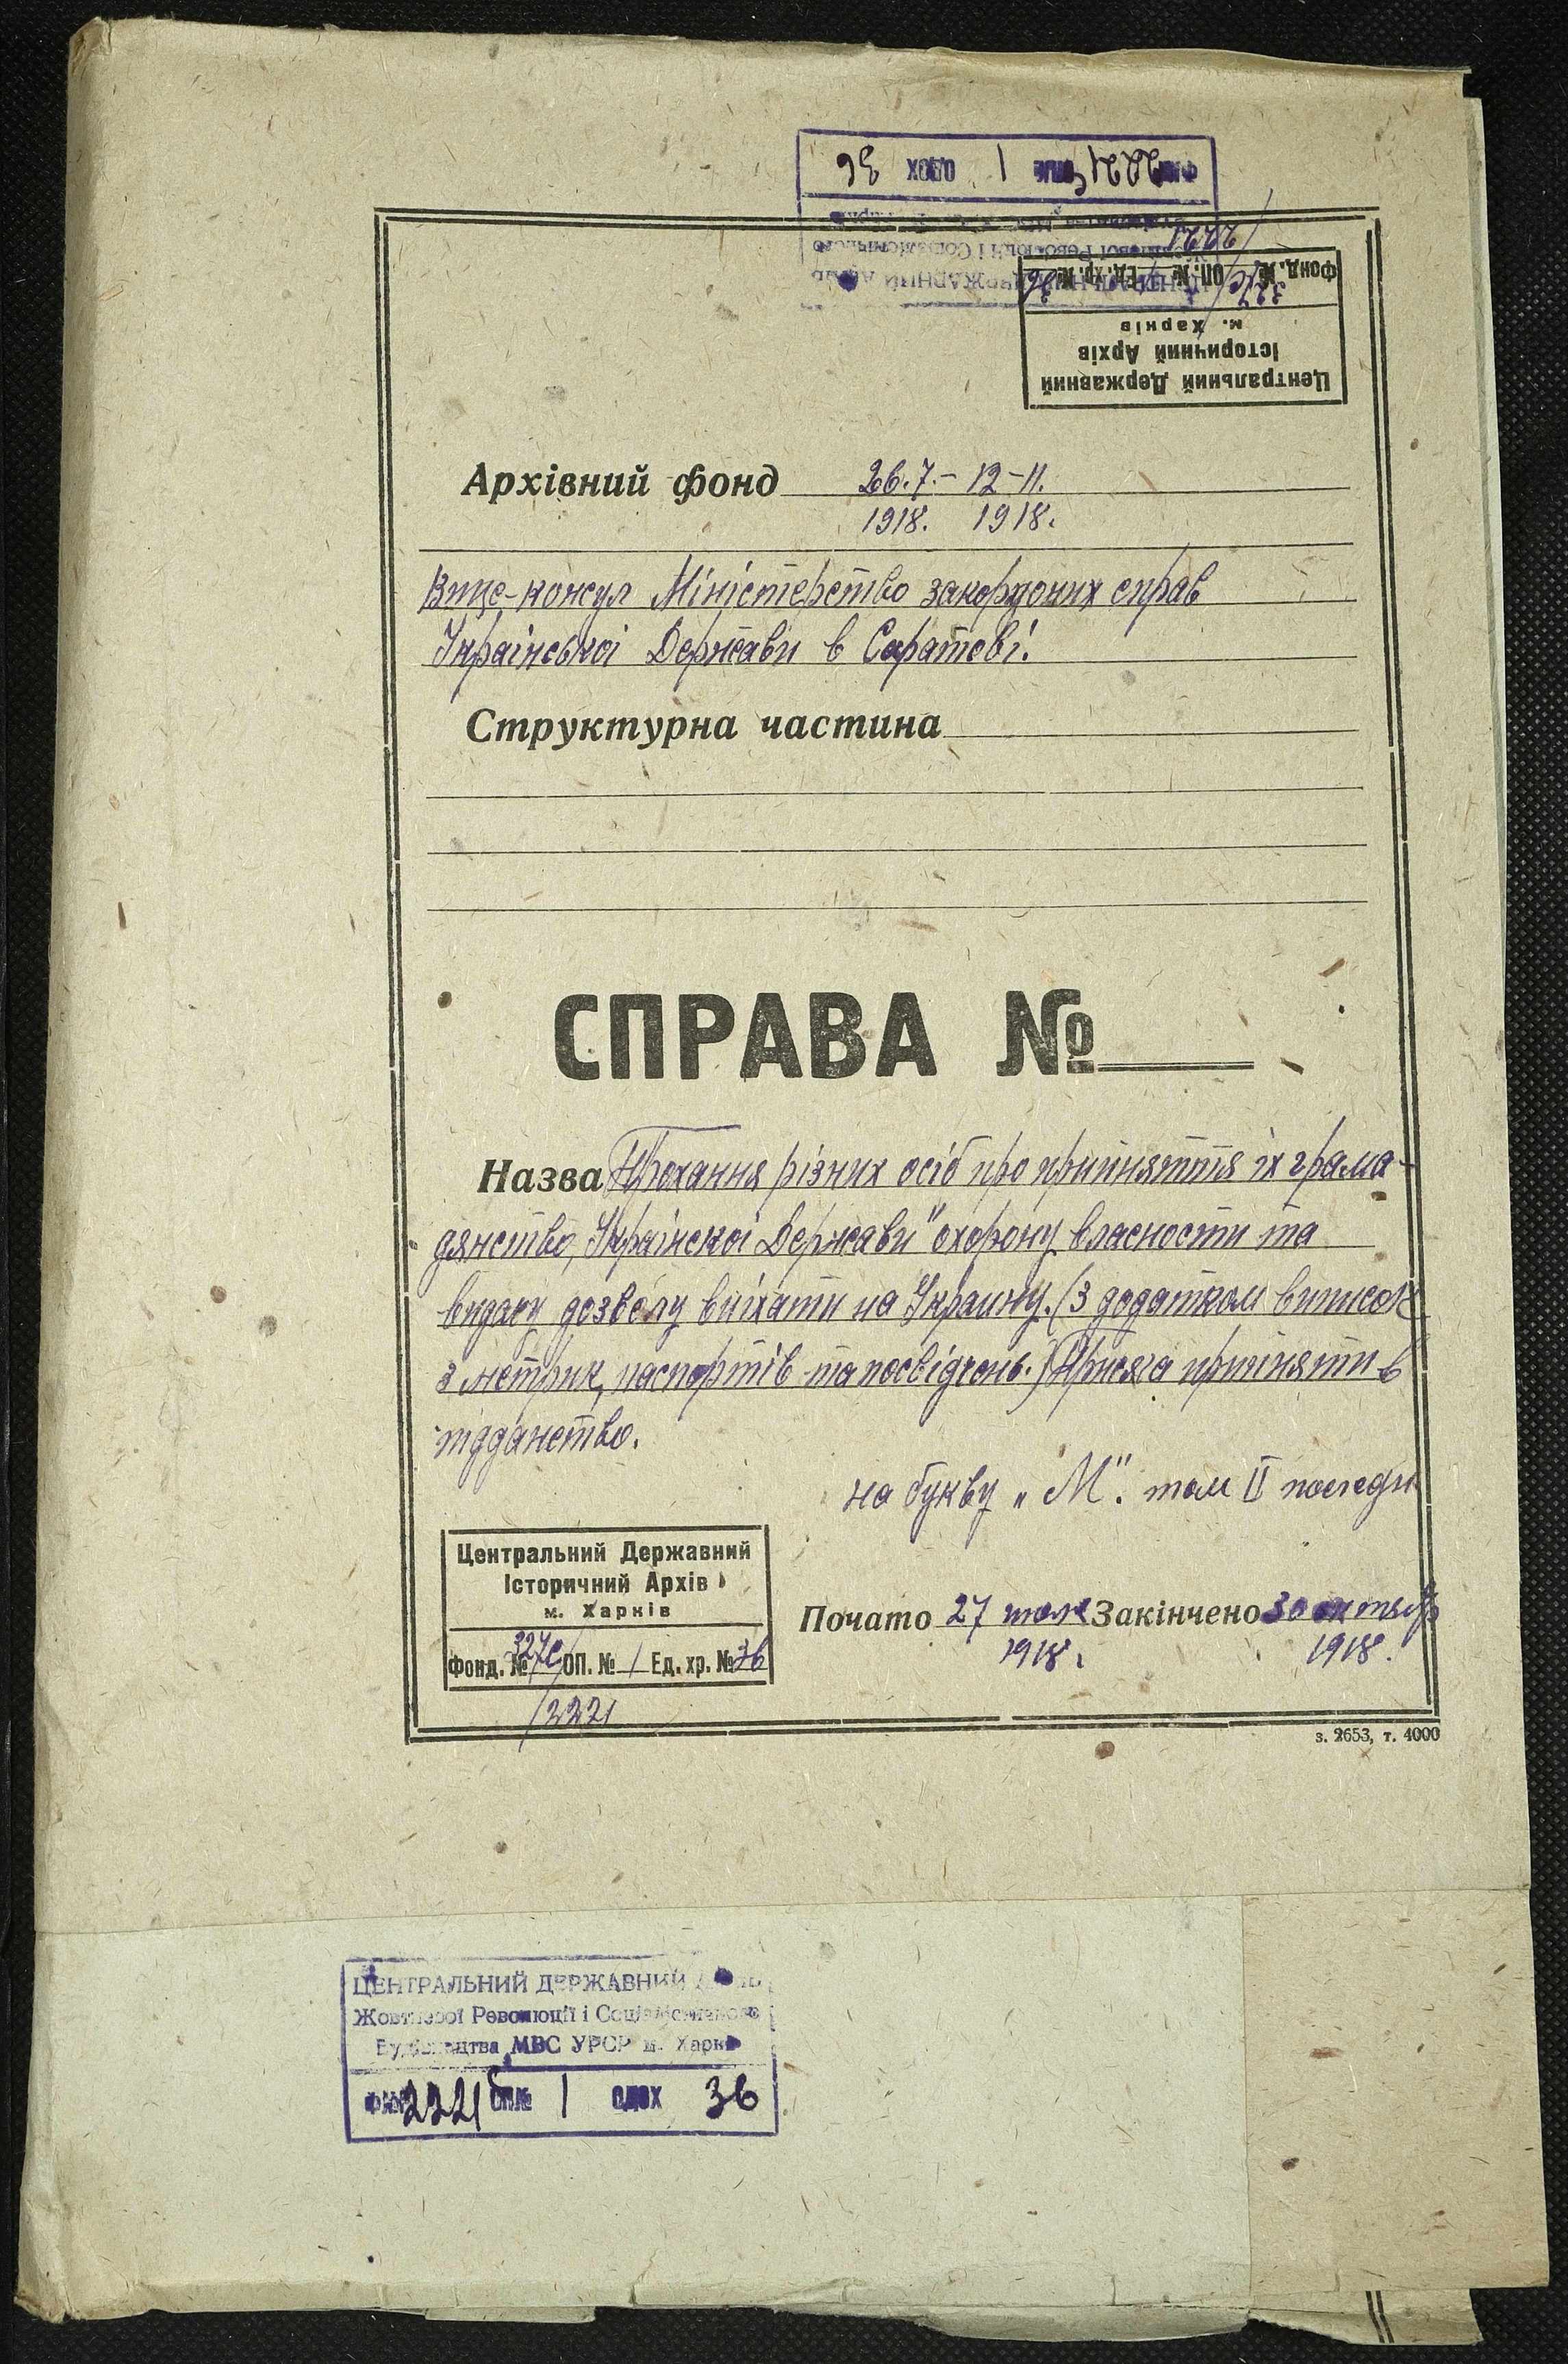 ФОН 2221 ОП№ 1 ОДОХ 36
2221
Фонд. № ОП. № 1 Ед. хр. № 36
м. Харків
Історичний Архів
Центральний Державний
Архівний фонд 26.7.- 12-11.
1918. 1918.
Вице-консул Міністерство закордоних справ
Української Держави в Саратові.
Структурна частина
СПРАВА №
Назва Прохання різних осіб про прийняття їх грама-
дянство, Украінскоі Держави" охорону власности та
видачу дозволу виїхати на Украину. (З додатком виписок
з метрик, паспортів та посвідчень.) Присяга прийняти в
підданство.
на букву „М". том II
Центральний Державний
Історичний Архів
м. Харків
Фонд. № ОП. № 1 Ед. хр. № 36
2221
Почато 27 Закінчено 30 октяб
1918. 1918.
з. 2653, т. 4000
ЦЕНТРАЛЬНИЙ ДЕРЖАВНИЙ
Жовтневої Революції і Соціалістичного
Будівництва МВС УРСР м. Харків
ФОН 2221 ОП№ 1 ОДОХ 36